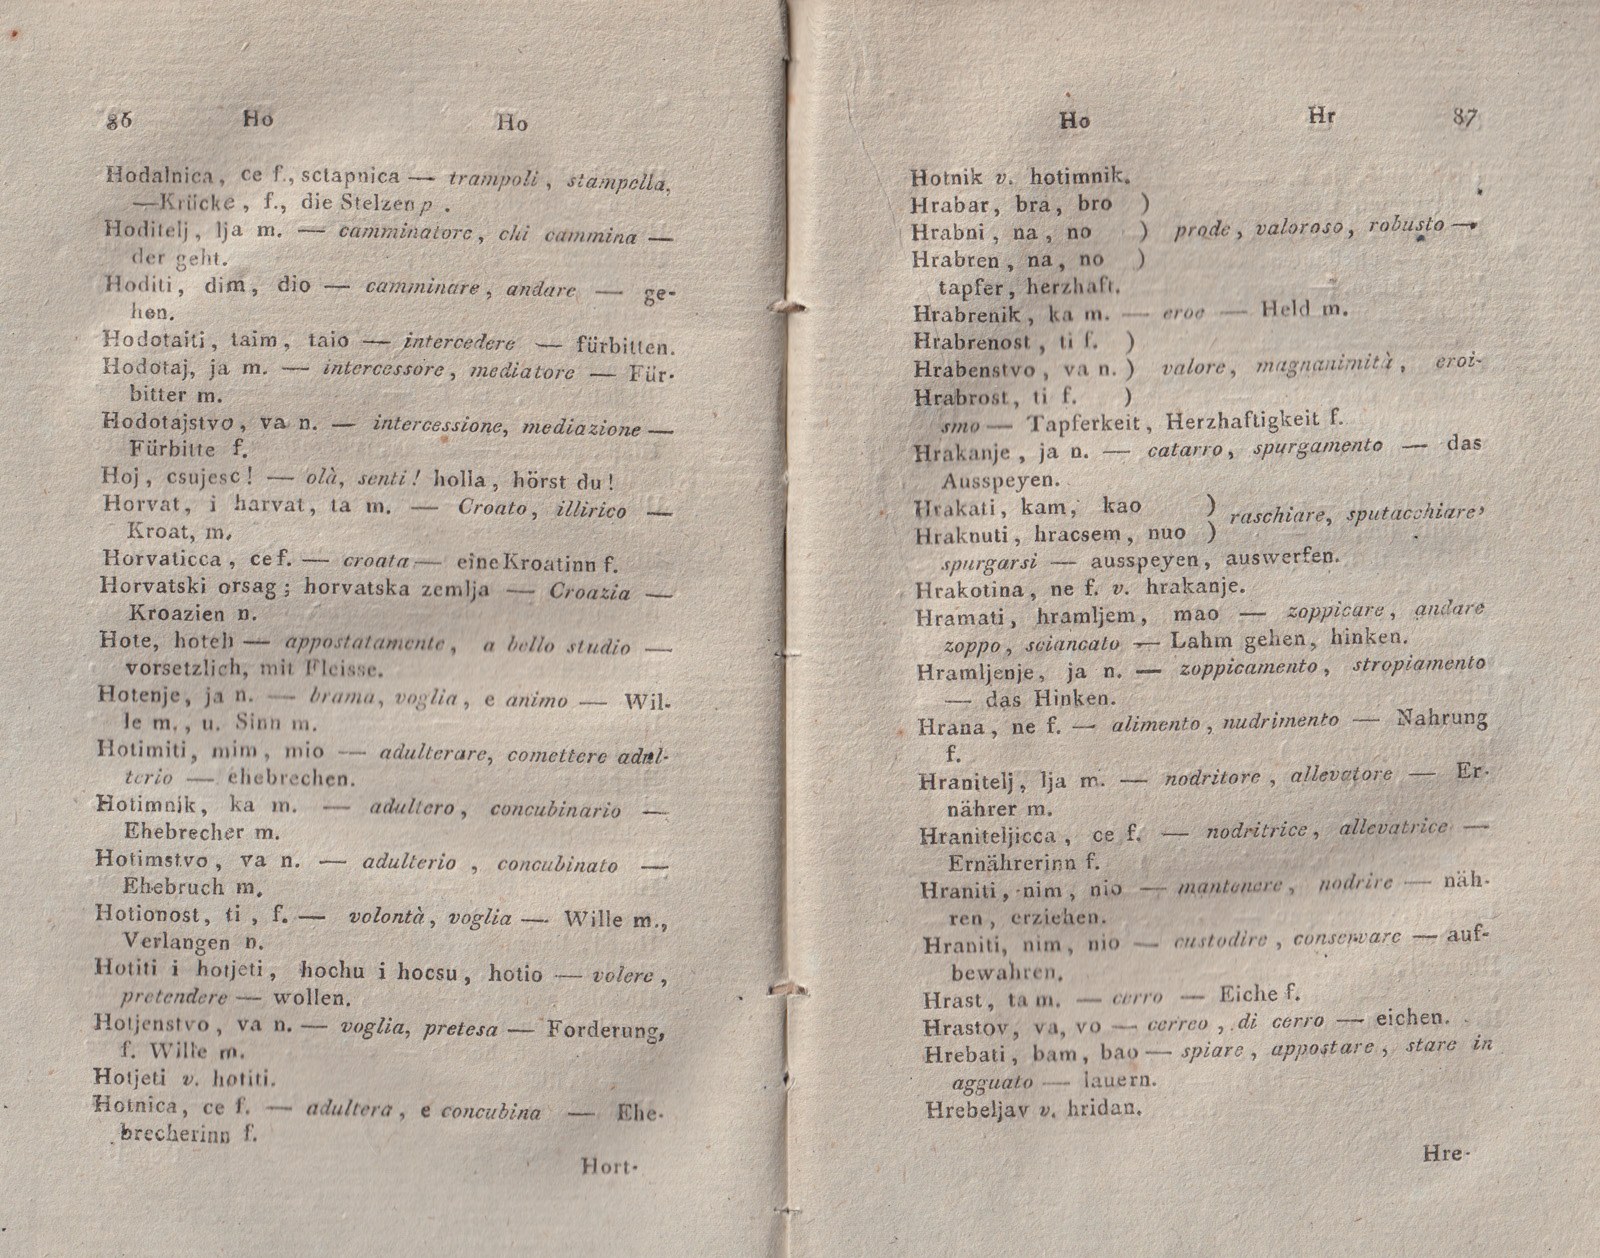 86 Ho Ho
Hodalnica, ce f., sctapnica — trampoli, stampella,
—Krücke, f., die Stelzen p.
Hoditelj, lja m. — camminatore, chi cammina —
der geht.
Hoditi, dim, dio — camminare, andare — ge-
hen.
Hodotaiti, taim, taio — intercedere — fürbitten.
Hodotaj, ja m. — intercessore, mediatore — Für-
bitter m.
Hodotajstvo, va n. — intercessione, mediazione —
Fürbitte f.
Hoj, csujesc! — olà, senti! holla, hörst du!
Horvat, i harvat, ta m. — Croato, illirico —
Kroat, m.
Horvaticca, ce f. — croata — eine Kroatinn f.
Horvatski orsag; horvatska zemlja — Croazia —
Kroazien n.
Hote, hoteh — appostatamente, a bello studio —
vorsetzlich, mit Fleisse.
Hotenje, ja n. — brama, voglia, e animo — Wil-
le m., u. Sinn m.
Hotimiti, mim, mio — adulterare, comettere adul-
terio — ehebrechen.
Hotimnik, ka m. — adultero, concubinario —
Ehebrecher m.
Hotimstvo, va n. — adulterio, concubinato —
Ehebruch m.
Hotionost, ti, f. — volontà, voglia — Wille m.,
Verlangen n.
Hotiti i hotjeti, hochu i hocsu, hotio — volere,
pretendere — wollen.
Hotjenstvo, va n. — voglia, pretesa — Forderung,
f. Wille m.
Hotjeti v. hotiti.
Hotnica, ce f. — adultera, e concubina — Ehe-
brecherinn f.
Hort-
Ho Hr 87
Hotnik v. hotimnik.
Hrabar, bra, bro )
Hrabni, na, no ) prode, valoroso, robusto —
Hrabren, na, no )
tapfer, herzhaft.
Hrabrenik, ka m. — eroe — Held m.
Hrabrenost, ti f. )
Hrabenstvo, va n. ) valore, magnanimità, eroi-
Hrabrost, ti f. )
smo — Tapferkeit, Herzhaftigkeit f.
Hrakanje, ja n. — catarro, spurgamento — das
Ausspeyen.
Hrakati, kam, kao )
raschiare, sputacchiare,
Hraknuti, hracsem, nuo )
spurgarsi — ausspeyen, auswerfen.
Hrakotina, ne f. v. hrakanje.
Hramati, hramljem, mao — zoppicare, andare
zoppo, sciancato — Lahm gehen, hinken.
Hramljenje, ja n. — zoppicamento, stropiamento
— das Hinken.
Hrana, ne f. — alimento, nudrimento — Nahrung
f.
Hranitelj, lja m. — nodritore, allevatore — Er-
nährer m.
Hraniteljicca, ce f. — nodritrice, allevatrice —
Ernährerinn f.
Hraniti, nim, nio — mantenere, nodrire — näh-
ren, erziehen.
Hraniti, nim, nio — custodire, conservare — auf-
bewahren.
Hrast, ta m. — cerro — Eiche f.
Hrastov, va, vo — cerreo, di cerro — eichen.
Hrebati, bam, bao — spiare, appostare, stare in
agguato — lauern.
Hrebeljav v. hridan.
Hre-